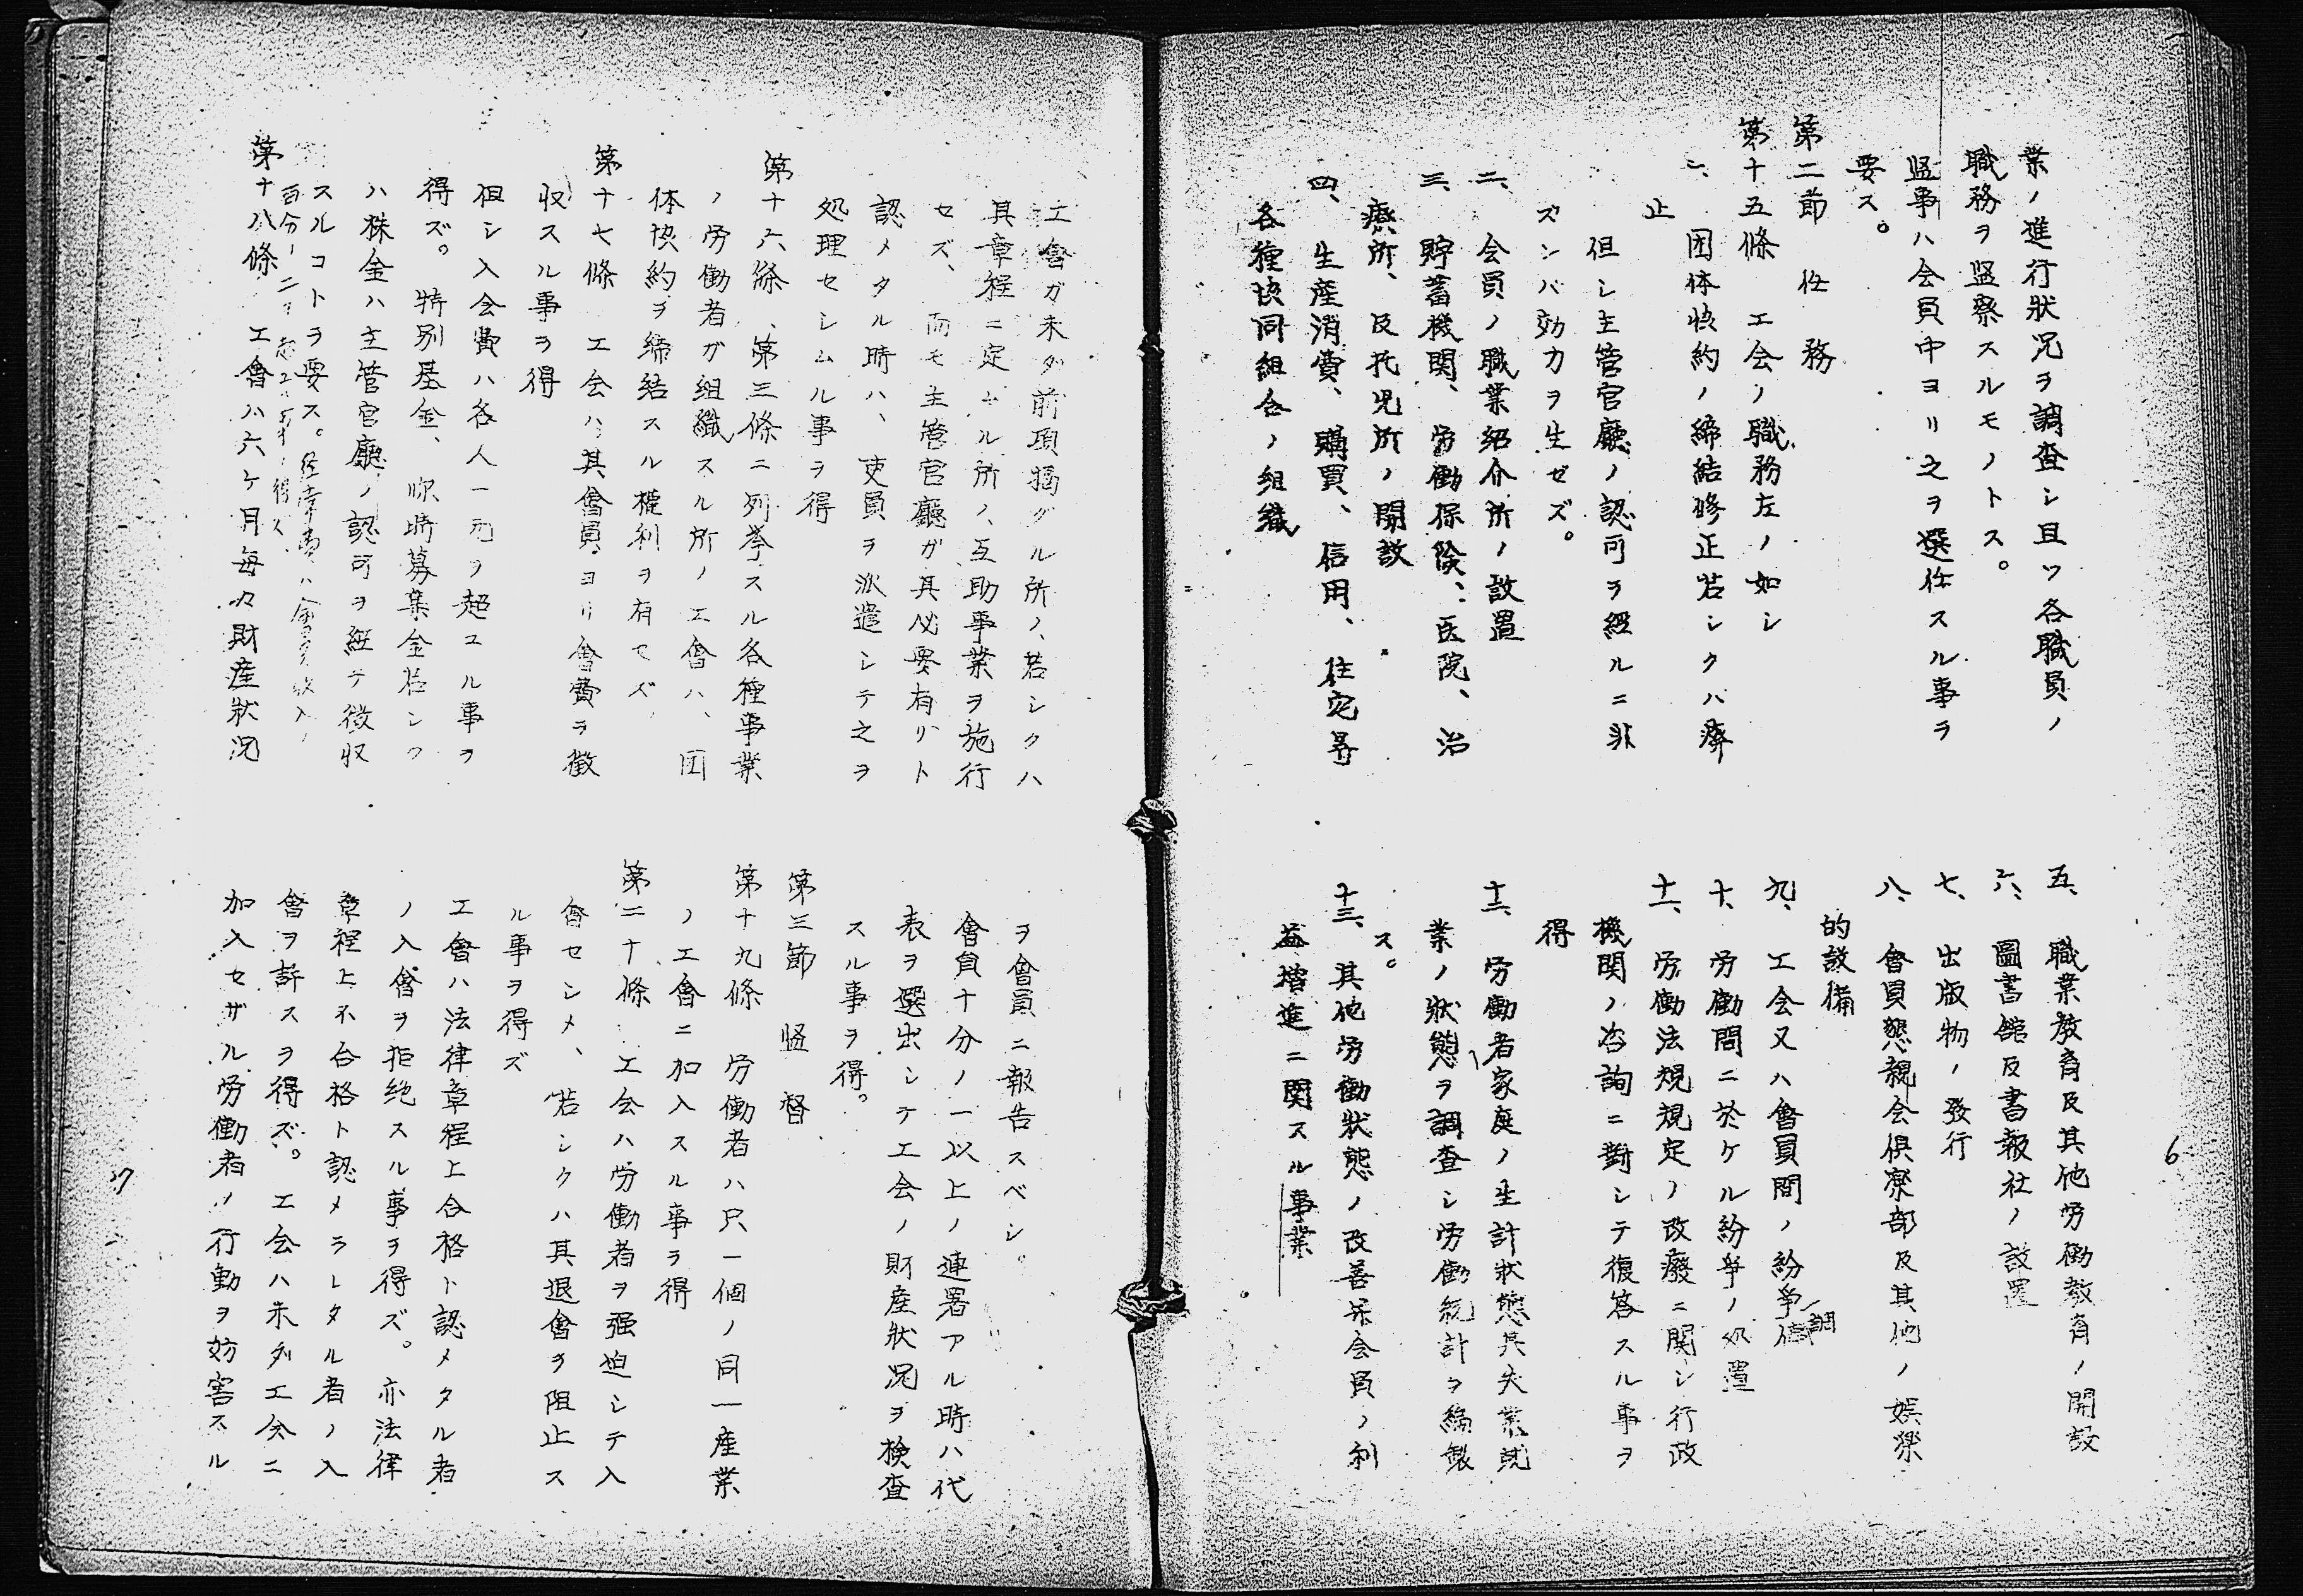 業ノ進行狀況ヲ調査シ且ツ各職員ノ
職務ヲ监察スルモノトス。
监事ハ会員中ヨリ之ヲ選任スル事ヲ
要ス。
第二節 任務
第十五條 工会ノ職務左ノ如シ
一、団体協約ノ締結修正若シクハ廃
止
但シ主管官廳ノ認可ヲ経ルニ非
ズンバ効力ヲ生ゼズ。
二、会員ノ職業紹介所ノ設置
三、貯蓄機関、労働保険、医院、治
療所、及托児所ノ開設
四、生産消費、購買、信用、住宅等
各種協同組合ノ組織
五、職業教育及其他労働教育ノ開設
六、圖書館及書報社ノ設置
七、出版物ノ發行
八、會員懇親会倶楽部及其他ノ娯楽
的設備
九、工会又ハ會員間ノ紛爭ノ調
十、労働間ニ於ケル紛爭ノ処置
十一、労働法規規定ノ改廢ニ関シ行政
機関ノ咨詢ニ對シテ復答スル事ヲ
得
十二、労働者家庭ノ生計状態其失業就
業ノ狀態ヲ調査シ労働統計ヲ編製
ス。
十三、其他労働狀態ノ改善并会員ノ利
益増進ニ関スル事業
6
工會ガ未ダ前項掲グル所ノ、若シクハ
其章程ニ定ムル所ノ、互助事業ヲ施行
セズ、而モ主管官廳ガ其必要有リト
認メタル時ハ、吏員ヲ派遣シテ之ヲ
処理セシムル事ヲ得
第十六條、第三條ニ列挙スル各種事業
ノ労働者ガ組織スル所ノ工會ハ、団
体協約ヲ締結スル権利ヲ有セズ
第十七條 工会ハ其會員ヨリ會費ヲ徴
収スル事ヲ得
但シ入会費ハ各人一元ヲ超ユル事ヲ
得ズ。特別基金、臨時募集金若シク
ハ株金ハ主管官廳ノ認可ヲ経テ徴収
スルコトヲ要ス。経常費ハ會員収入ノ
百分ノ二ヲ超ユルヲ得ズ
第十八條 工會ハ六ケ月毎ニ財産狀況
ヲ會員ニ報告スベシ。
會員十分ノ一以上ノ連署アル時ハ代
表ヲ選出シテ工会ノ財産狀況ヲ検査
スル事ヲ得。
第三節 监督
第十九條 労働者ハ只一個ノ同一産業
ノ工會ニ加入スル事ヲ得
第二十條 工会ハ労働者ヲ强迫シテ入
會セシメ、若シクハ其退會ヲ阻止ス
ル事ヲ得ズ
工會ハ法律章程上合格ト認メタル者
ノ入會ヲ拒絶スル事ヲ得ズ。亦法律
章程上不合格ト認メラレタル者ノ入
會ヲ許スヲ得ズ。工会ハ未ダ工会ニ
加入セザル労働者ノ行動ヲ妨害スル